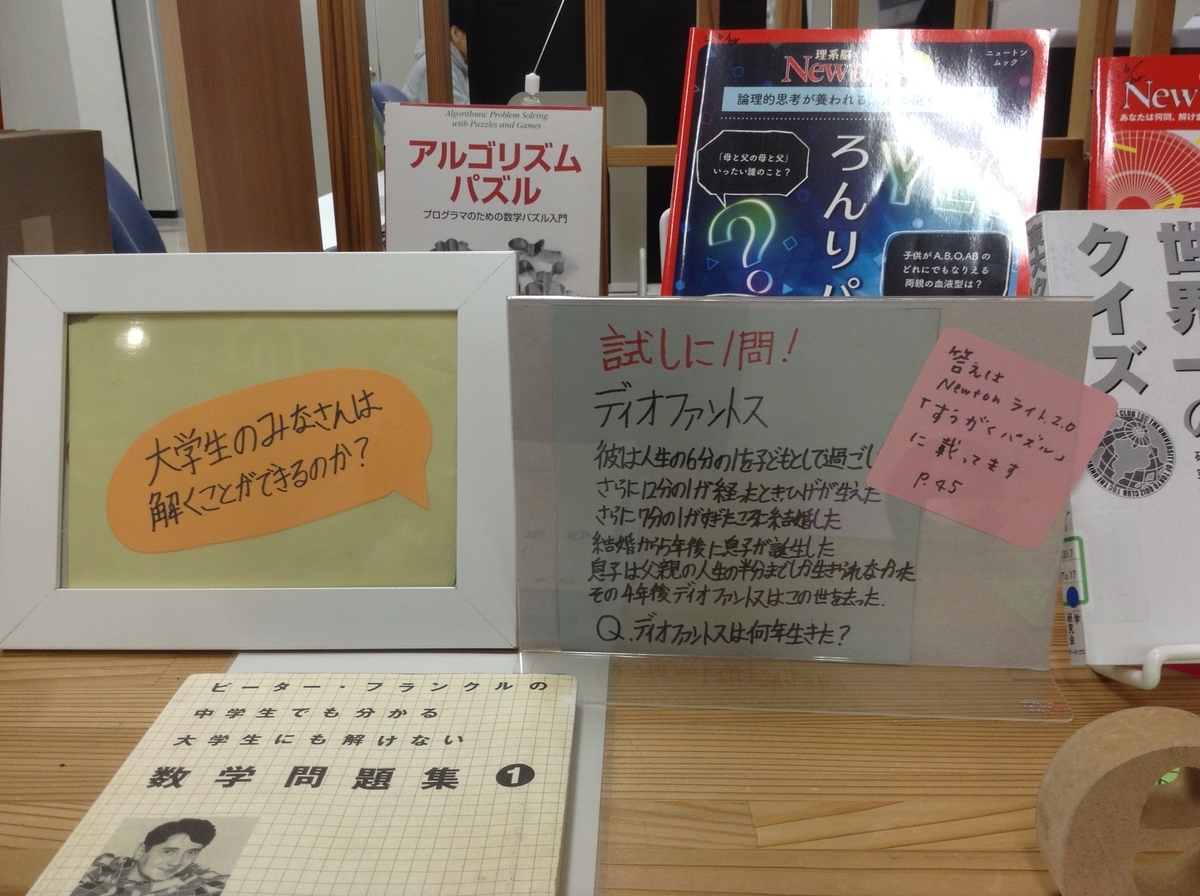 Algorithmic Problem Solving
with Puzzles and Games
アルゴリズム
パズル
プログラマのための数学パズル入門
理系脳
New
ニュートン
ムック
論理的思考が養われる
「母と父の母と父」
いったい誰のこと?
ろんりパ
子供がA,B,O,ABの
どれにでもなりえる
両親の血液型は?
New
あなたは何問,解けま
世界一の
クイズ
大学生のみなさんは
解くことができるのか?
試しに1問!
ディオファントス
彼は人生の6分の1を子どもとして過ごし
さらに12分の1が経ったときひげが生えた
さらに7分の1がすぎたころに結婚した
結婚から5年後に息子が誕生した
息子は父親の人生の半分までしか生きられなかった
その4年後ディオファントスはこの世を去った.
Q.ディオファントスは何年生きた?
答えは
Newton ライト2.0
「すうがくパズル」
に載ってます
P.45
ピーター・フランクルの
中学生でも分かる
大学生にも解けない
数学問題集1